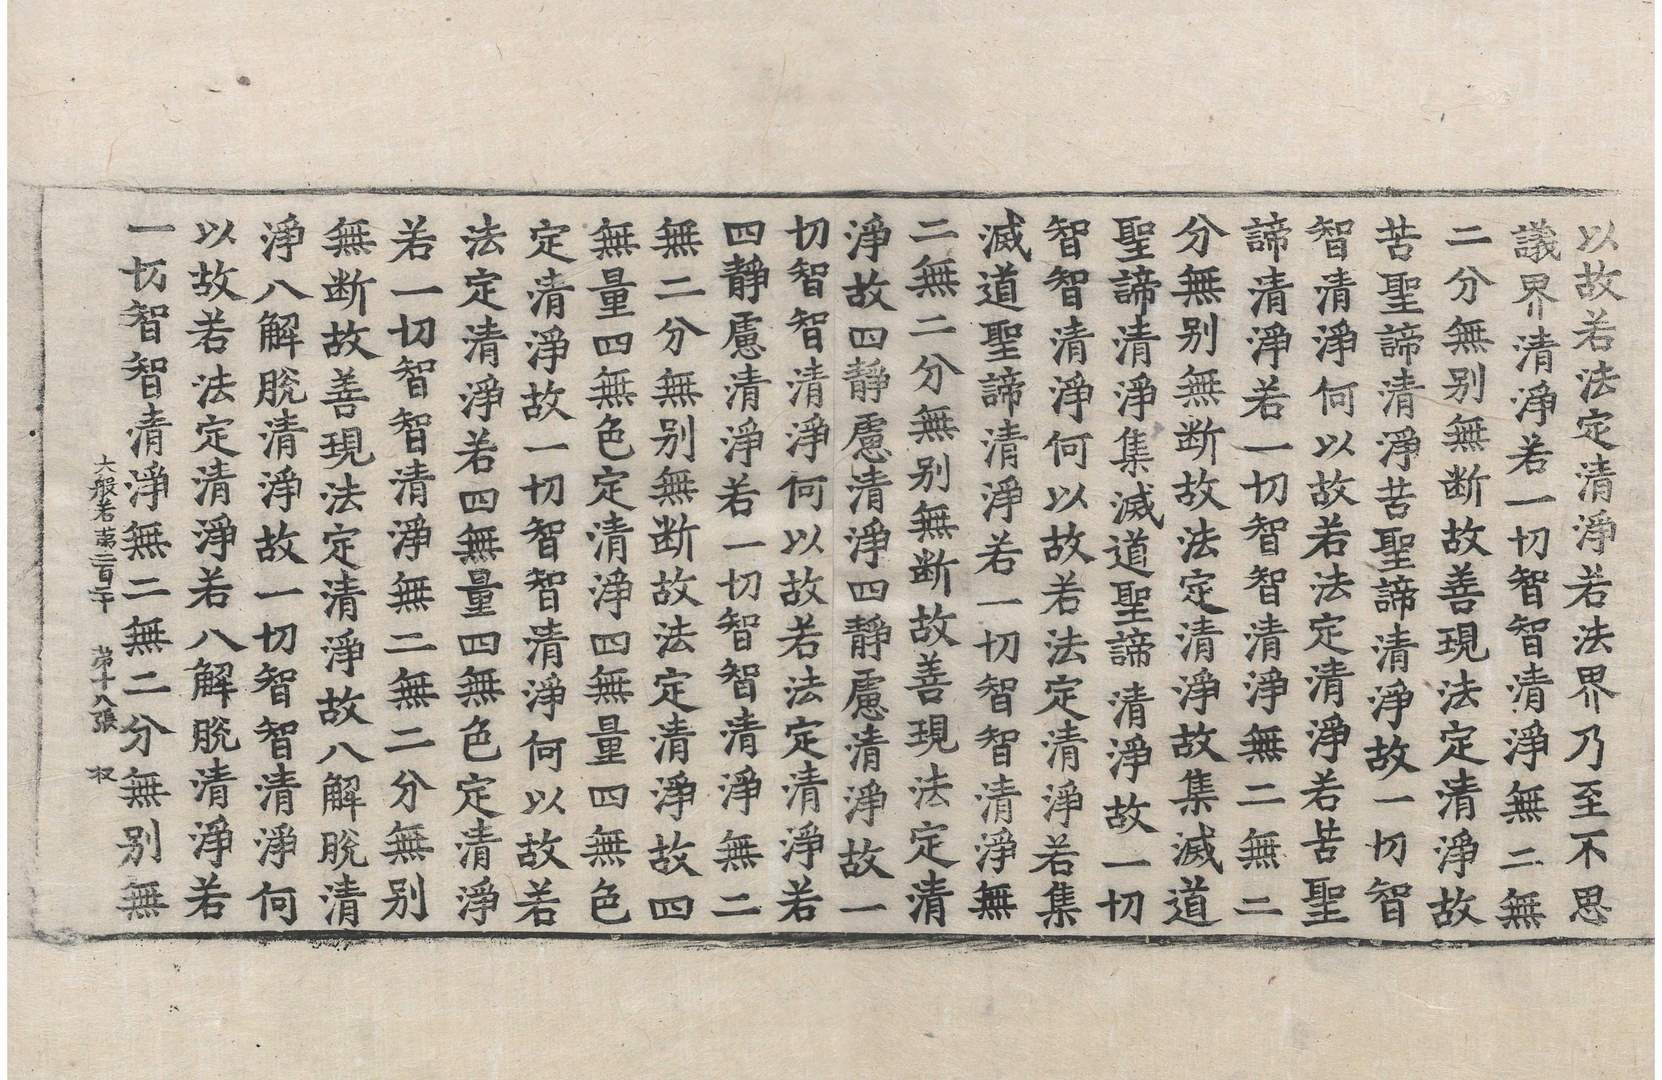 以故若法定清淨若法界乃至不思
議界清淨若一切智智清淨無二無
二分無别無断故善現法定清淨故
苦聖諦清淨苦聖諦清淨故一切智
智清淨何以故若法定清淨若苦聖
諦清淨若一切智智清淨無二無二
分無别無断故法定清淨故集滅道
聖諦清淨集滅道聖諦清淨故一切
智智清淨何以故若法定清淨若集
滅道聖諦清淨若一切智智清淨無
二無二分無别無断故善現法定清
淨故四靜慮清淨四靜慮清淨故一
切智智清淨何以故若法定清淨若
四靜慮清淨若一切智智清淨無二
無二分無别無断故法定清淨故四
無量四無色定清淨四無量四無色
定清淨故一切智智清淨何以故若
法定清淨若四無量四無色定清淨
若一切智智清淨無二無二分無别
無断故善現法定清淨故八解脫清
淨八解脫清淨故一切智智清淨何
以故若法定清淨若八解脫清淨若
一切智智清淨無二無二分無别無
大般若第二百 第十八張